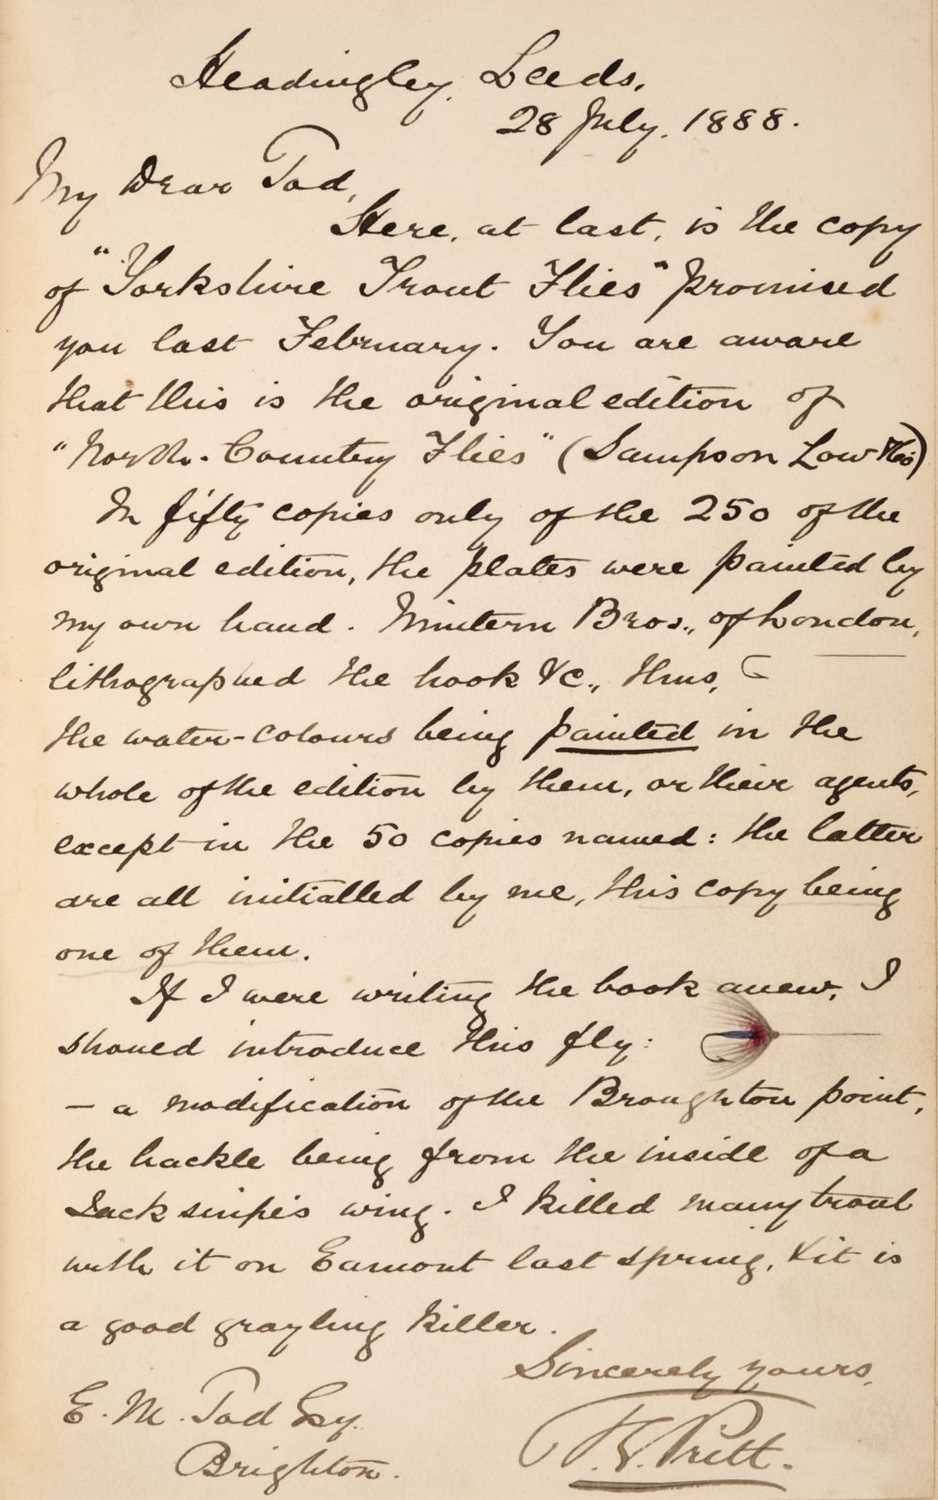 Headingley, Leeds.
28 July, 1888.
My Dear Tod,
Here, at last, is the copy
of "Yorkshire Trout Flies" promised
you last February. You are aware
that this is the original edition of
"North-Country Flies" (Sampson Low &Co)
In fifty copies only of the 250 of the
original edition, the plates were painted by
my own hand. Mintern Bros., of London,
lithographed the hook &c., thus,
the water-colours being painted in the
whole of the edition by them, or their agents,
except in the 50 copies named: the latter
are all initialled by me, this copy being
one of them.
If I were writing the book anew, I
should introduce this fly:
- a modification of the Broughton point,
the hackle being from the inside of a
Jack snipe's wing. I killed many trout
with it on Eamont last spring, & it is
a good grayling killer.
Sincerely yours,
T. E. Pritt.
E. M. Tod Esq.
Brighton.